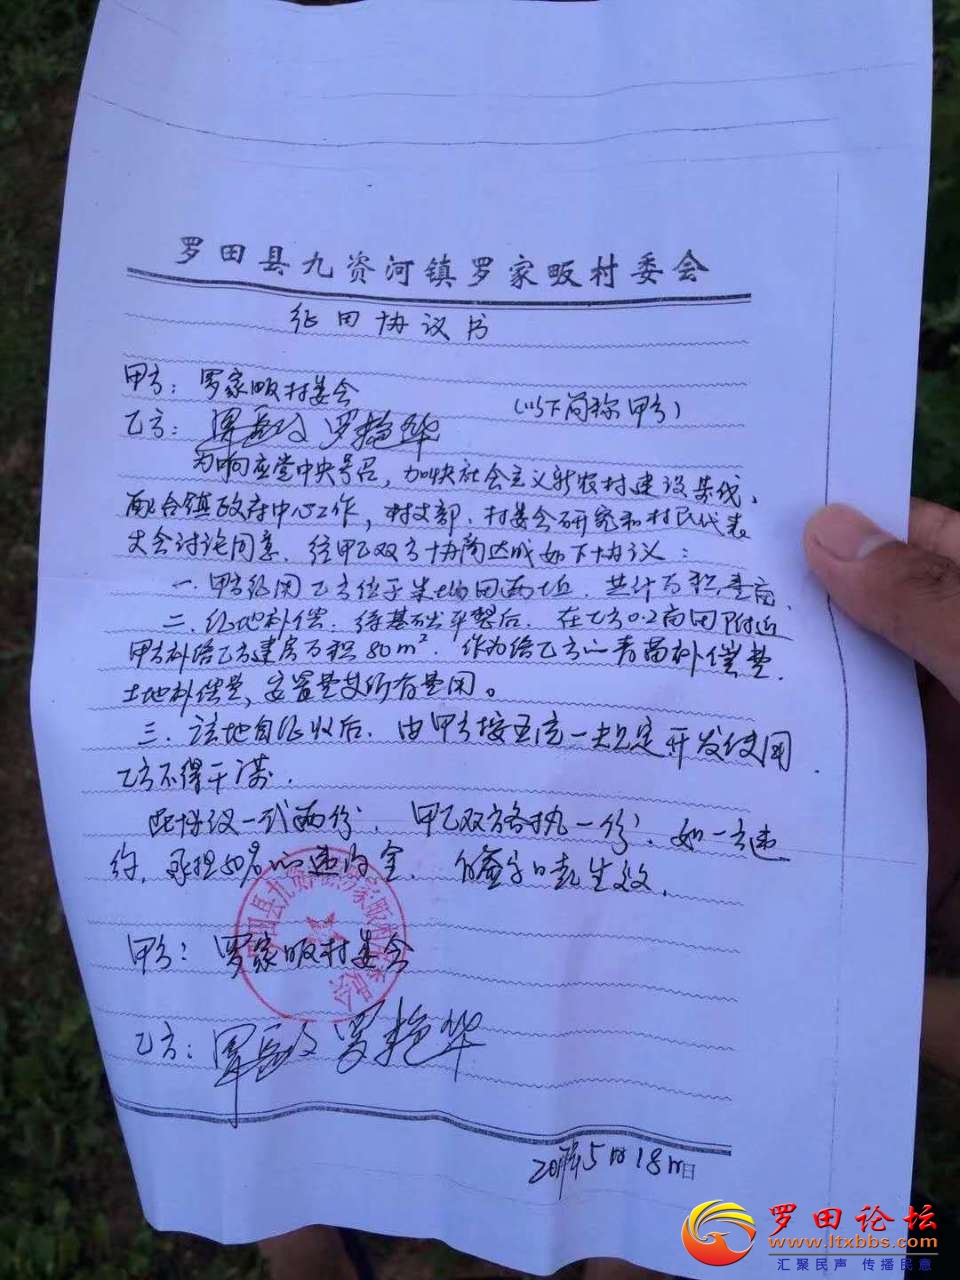 罗田县九资河镇罗家畈村委会
征田协议书
甲方：罗家畈村委会 （以下简称甲方）
乙方： 罗艳华
为响应党中央号召，加快社会主义新农村建设集伐、
配合镇政府中心工作，村支部、村委会研究和村民代表
大会讨论同意、经甲乙双方协商达成如下协议：
一、甲方征用乙方位于 田两丘、共计面积壹亩、
二、征地补偿、待基础平整后、在乙方0.2亩田附近
甲方补给乙方建房面积80m²、作为给乙方的青苗补偿费、
土地补偿费、安置费及所有费用。
三、该地自征收后、由甲方按 统一规定开发使用
乙方不得干涉、
此协议一式两份、甲乙双方各执一份、如一方违
约、承担50%的违约金、 签字日起生效、
甲方：罗家畈村委会
乙方： 罗艳华
5月18日
罗田县九资河镇罗家畈村民委员会
罗田论坛
www.ltxbbs.com
汇聚民声 传播民意